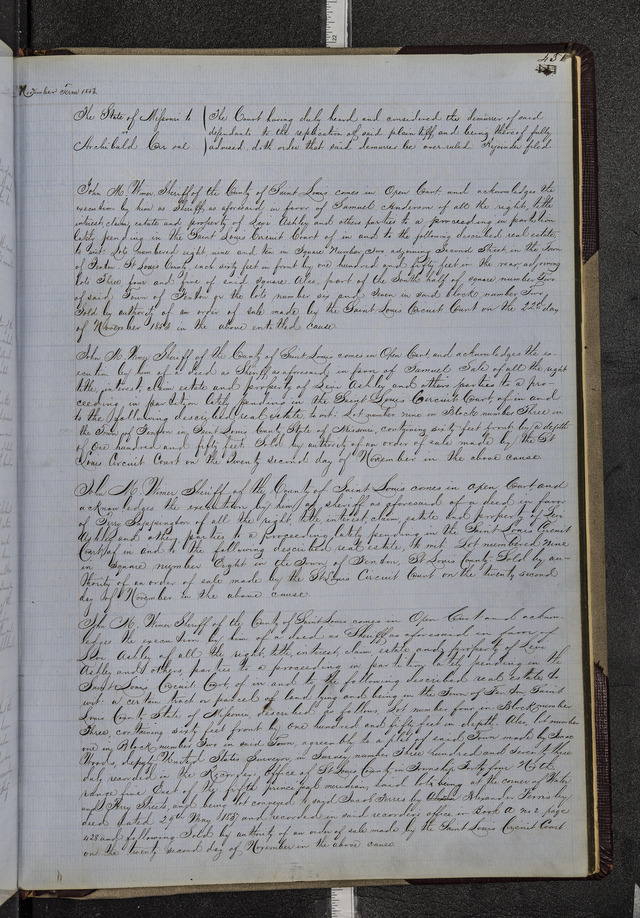 451
November Term 1853
The State of Missouri to The Court having duly heard and considered the demurrer of said
vs defendants to the replication of said plaintiff and being thereof fully
Archibald advised, doth order that said demurrer be over-ruled Rejoinder filed
John M. Wimer Sheriff of the County of Saint Louis comes in Open Court and acknowledges the
execution by him as Sheriff as aforesaid in favor of Samuel Anderson of all the right, title
interest, claim, estate and property of Levi Ashley and others parties to a proceeding in partition
lately pending in the Saint Louis Circuit Court of in and to the following described real estate
to wit: Lots numbered eight nine and ten in Square Number Two adjoining Second Street in the Town
of Fenton St. Louis County each sixty feet in front by one hundred and fifty feet in the rear adjoining
lots Three four and five of said square Also, part of the South half of square number Two
of said Town of Fenton or the lots number six and Seven in said block number Two
Sold by authority of an order of sale made by the Saint Louis Circuit Court on the 22d day
of November 1853 in the above entitled cause
John M. Wimer Sheriff of the County of Saint Louis comes in Open Court and acknowledges the ex-
ecution by him of a deed as Sheriff as aforesaid in favor of Samuel Sale of all the right
title, interest, claim estate and property of Levi Ashley and others parties to a pro-
ceeding in partition lately pending in the Saint Louis Circuit Court of in and
to the following described real estate to wit: Lot number nine in Block number Three in
the Town of Fenton in Saint Louis County State of Missouri, containing sixty feet front by a depth
of One hundred and fifty feet Sold by authority of an order of sale made by the St
Louis Circuit Court on the Twenty second day of November in the above cause
John M. Wimer Sheriff of the County of Saint Louis comes in open Court and
acknowledges the execution by him as sheriff as aforesaid of a deed in favor
of Sappington of all the right, title, interest, claim, estate and property of Levi
Ashley and others parties to a proceeding lately pending in the Saint Louis Circuit
Court of in and to the following described real estate, to wit: Lot numbered Nine
in Square number Eight in the Town of Fenton, St Louis County Sold by au-
thority of an order of sale made by the St Louis Circuit Court on the twenty second
day of November in the above cause
John M. Wimer Sheriff of the County of Saint Louis comes in Open Court and acknow-
ledges the execution by him of a deed as Sheriff as aforesaid in favor of
Ashley of all the right, title, interest, claim estate and property of Levi
Ashley and others, parties to a proceeding in partition lately pending in the
Saint Louis Circuit Court, of in and to the following described real estate to
wit: a certain tract or parcel of land lying and being in the Town of Fenton Saint
Louis County State of Missouri described as follows Lot number four in Block number
Three, containing sixty feet front by one hundred and fifty feet in depth Also, lot number
one in Block number Two in said Town, agreeably to a plat of said Town made by Isaac
Woods, deputy United States Surveyor, in Survey number Three hundred and seventy three
duly recorded in the Recorder's Office of St Louis County in Township Forty four North
range five East of the fifth principal meridian, said lots being at the corner of Water
and Ferry Streets, and being lot conveyed to said Jacob by Alexander by
deed dated 29th May 1837 and recorded in said recorders office in Book A No 2 page
428 and following Sold by authority of an order of sale made by the Saint Louis Circuit Court
on the twenty second day of November in the above cause